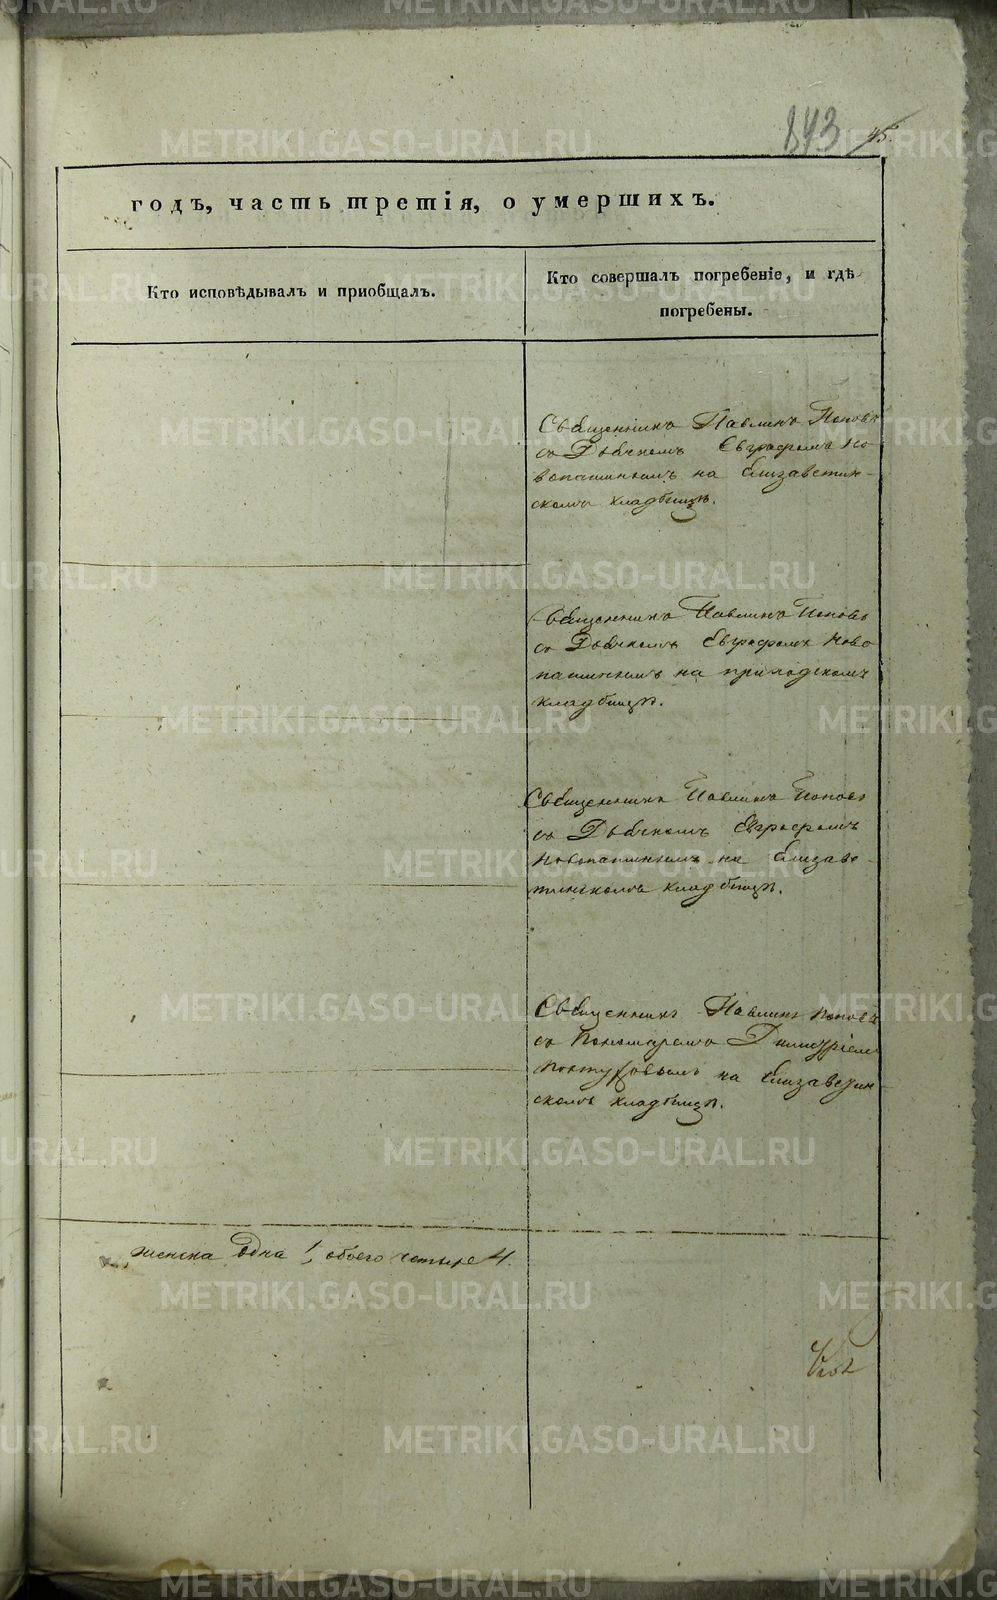 843 45.
годъ, часть третія, о умершихъ.
Кто исповѣдывалъ и приобщалъ.
Кто совершалъ погребеніе, и гдѣ
погребены.
Священникъ Павлинъ Поповъ
съ Дьячкомъ Евграфомъ Но-
вопашинымъ на Елизаветин-
скомъ кладбищѣ.
Священникъ Павлинъ Поповъ
съ Дьячкомъ Евграфомъ Ново
пашинымъ на приходскомъ
кладбищѣ.
Священникъ Павлинъ Поповъ
съ Дьячкомъ Евграфомъ
Новопашинымъ на Елизаве-
тинскомъ кладбищѣ.
Священникъ Павлинъ Поповъ
съ Пономаремъ Димитріемъ
на Елизаветин-
скомъ кладбищѣ.
женска одна 1, обоего четыре 4.
METRIKI.GASO-URAL.RU